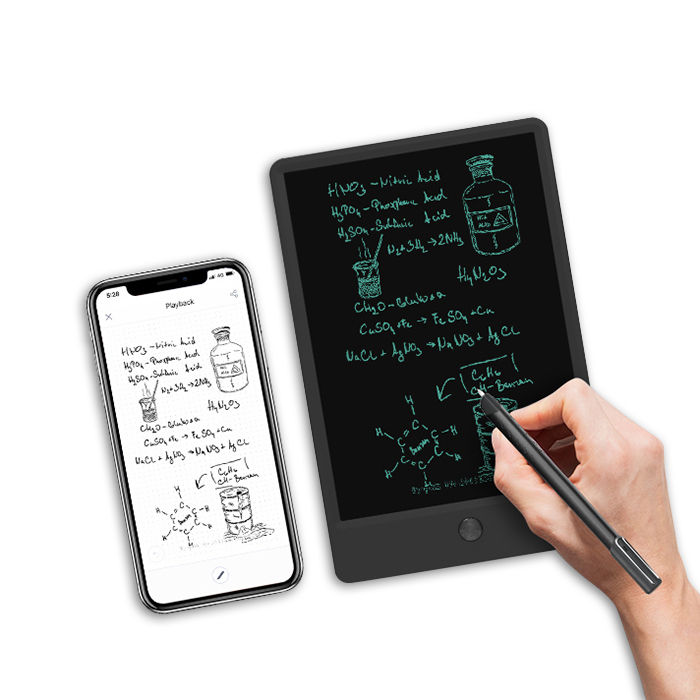 5:28 4G
Playback
HNO3 - Nitric Acid
H3PO4 - Phosphoric Acid
H2SO4 - Sulfuric Acid
N2+3H2→2NH3
HCl
ACID
H4N2O3
CH2O -
CuSO4+Fe → FeSO4+Cu
NaCl + AgNO3 → NaNO3 + AgCl
C6H6
CH - Benzen
H
H C C H
H C C H
H
HNO3 - Nitric Acid
H3PO4 - Phosphoric Acid
H2SO4 - Sulfuric Acid
N2+3H2→2NH3
HCl
ACID
H4N2O3
CH2O -
CuSO4+Fe → FeSO4+Cu
NaCl + AgNO3 → NaNO3 + AgCl
C6H6
CH - Benzen
H
H C C H
H C C H
H